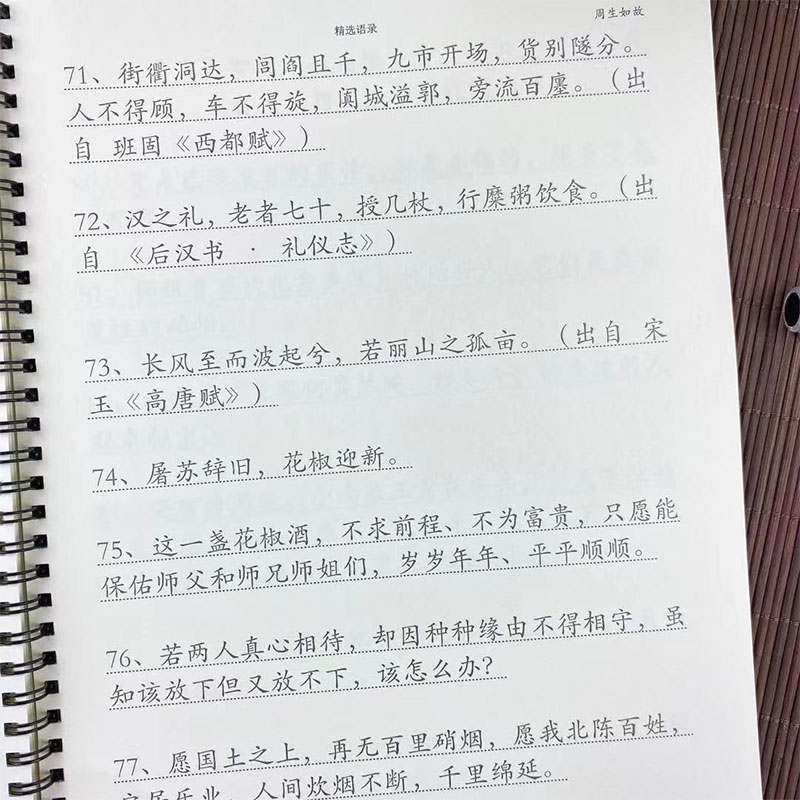 精选语录
周生如故
71、街衢洞达，闾阎且千，九市开场，货别隧分。
人不得顾，车不得旋，阗城溢郭，旁流百廛。（出
自 班固《西都赋》）
72、汉之礼，老者七十，授几杖，行糜粥饮食。（出
自 《后汉书 · 礼仪志》）
73、长风至而波起兮，若丽山之孤亩。（出自 宋
玉《高唐赋》）
74、屠苏辞旧，花椒迎新。
75、这一盏花椒酒，不求前程、不为富贵，只愿能
保佑师父和师兄师姐们，岁岁年年、平平顺顺。
76、若两人真心相待，却因种种缘由不得相守，虽
知该放下但又放不下，该怎么办？
77、愿国土之上，再无百里硝烟，愿我北陈百姓，
安居乐业，人间炊烟不断，千里绵延。